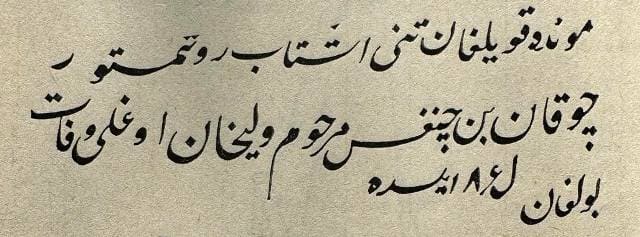 مونده قویلغان تنی اشتاب روتمستور
چوقان بن چنغس مرحوم ولیخان اوغلی وفات
بولغان